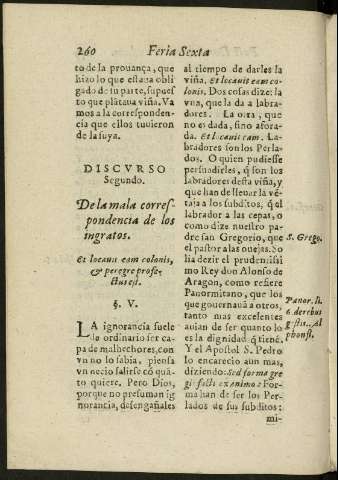 260 Feria Sexta
to de la prouança, que
hizo lo que estaua obli
gado de su parte, supues
to que plãtaua viña. Va
mos a la correspondencia
que ellos tuuieron
de la suya.
DISCVRSO
Segundo.
De la mala corres-
pondencia de los
ingratos.
Et locauit eam colonis,
& peregre profe-
ctus est.
§. V.
LA ignorancia suele
lo ordinario ser ca
pa de malhechores, con
vn no lo sabia, piensa
vn necio salirse cõ quã-
to quiere. Pero Dios,
porque no presuman ig
norancia, desengañales
al tiempo de darles la
viña. Et locauit eam co-
lonis. Dos cosas dize: la
vna, que la da a labra-
dores. La otra, que
no es dada, sino afora-
da. Et locauit eam. La-
bradores son los Perla-
dos. O quien pudiesse
persuadirles, q̃ son los
labradores desta viña, y
que han de lleuar la vẽ-
taja a los subditos, q̃ el
labrador a las cepas, o
como dize nuestro pa-
dre san Gregorio, que
el pastor a las ouejas. So
lia dezir el prudentissi
mo Rey don Alonso de
Aragon, como refiere
Panormitano, que los
que gouernauã a otros,
tanto mas excelentes
auian de ser quanto lo
es la dignidad q̃ tienẽ.
Y el Apostol S. Pedro
lo encarecio aun mas,
diziendo: Sed forma gre
gi facti ex animo: For-
ma han de ser los Per-
lados de sus subditos:
mi-
S. Grego.
Panor. li.
6. de rebus
gestis Al
phonsi.